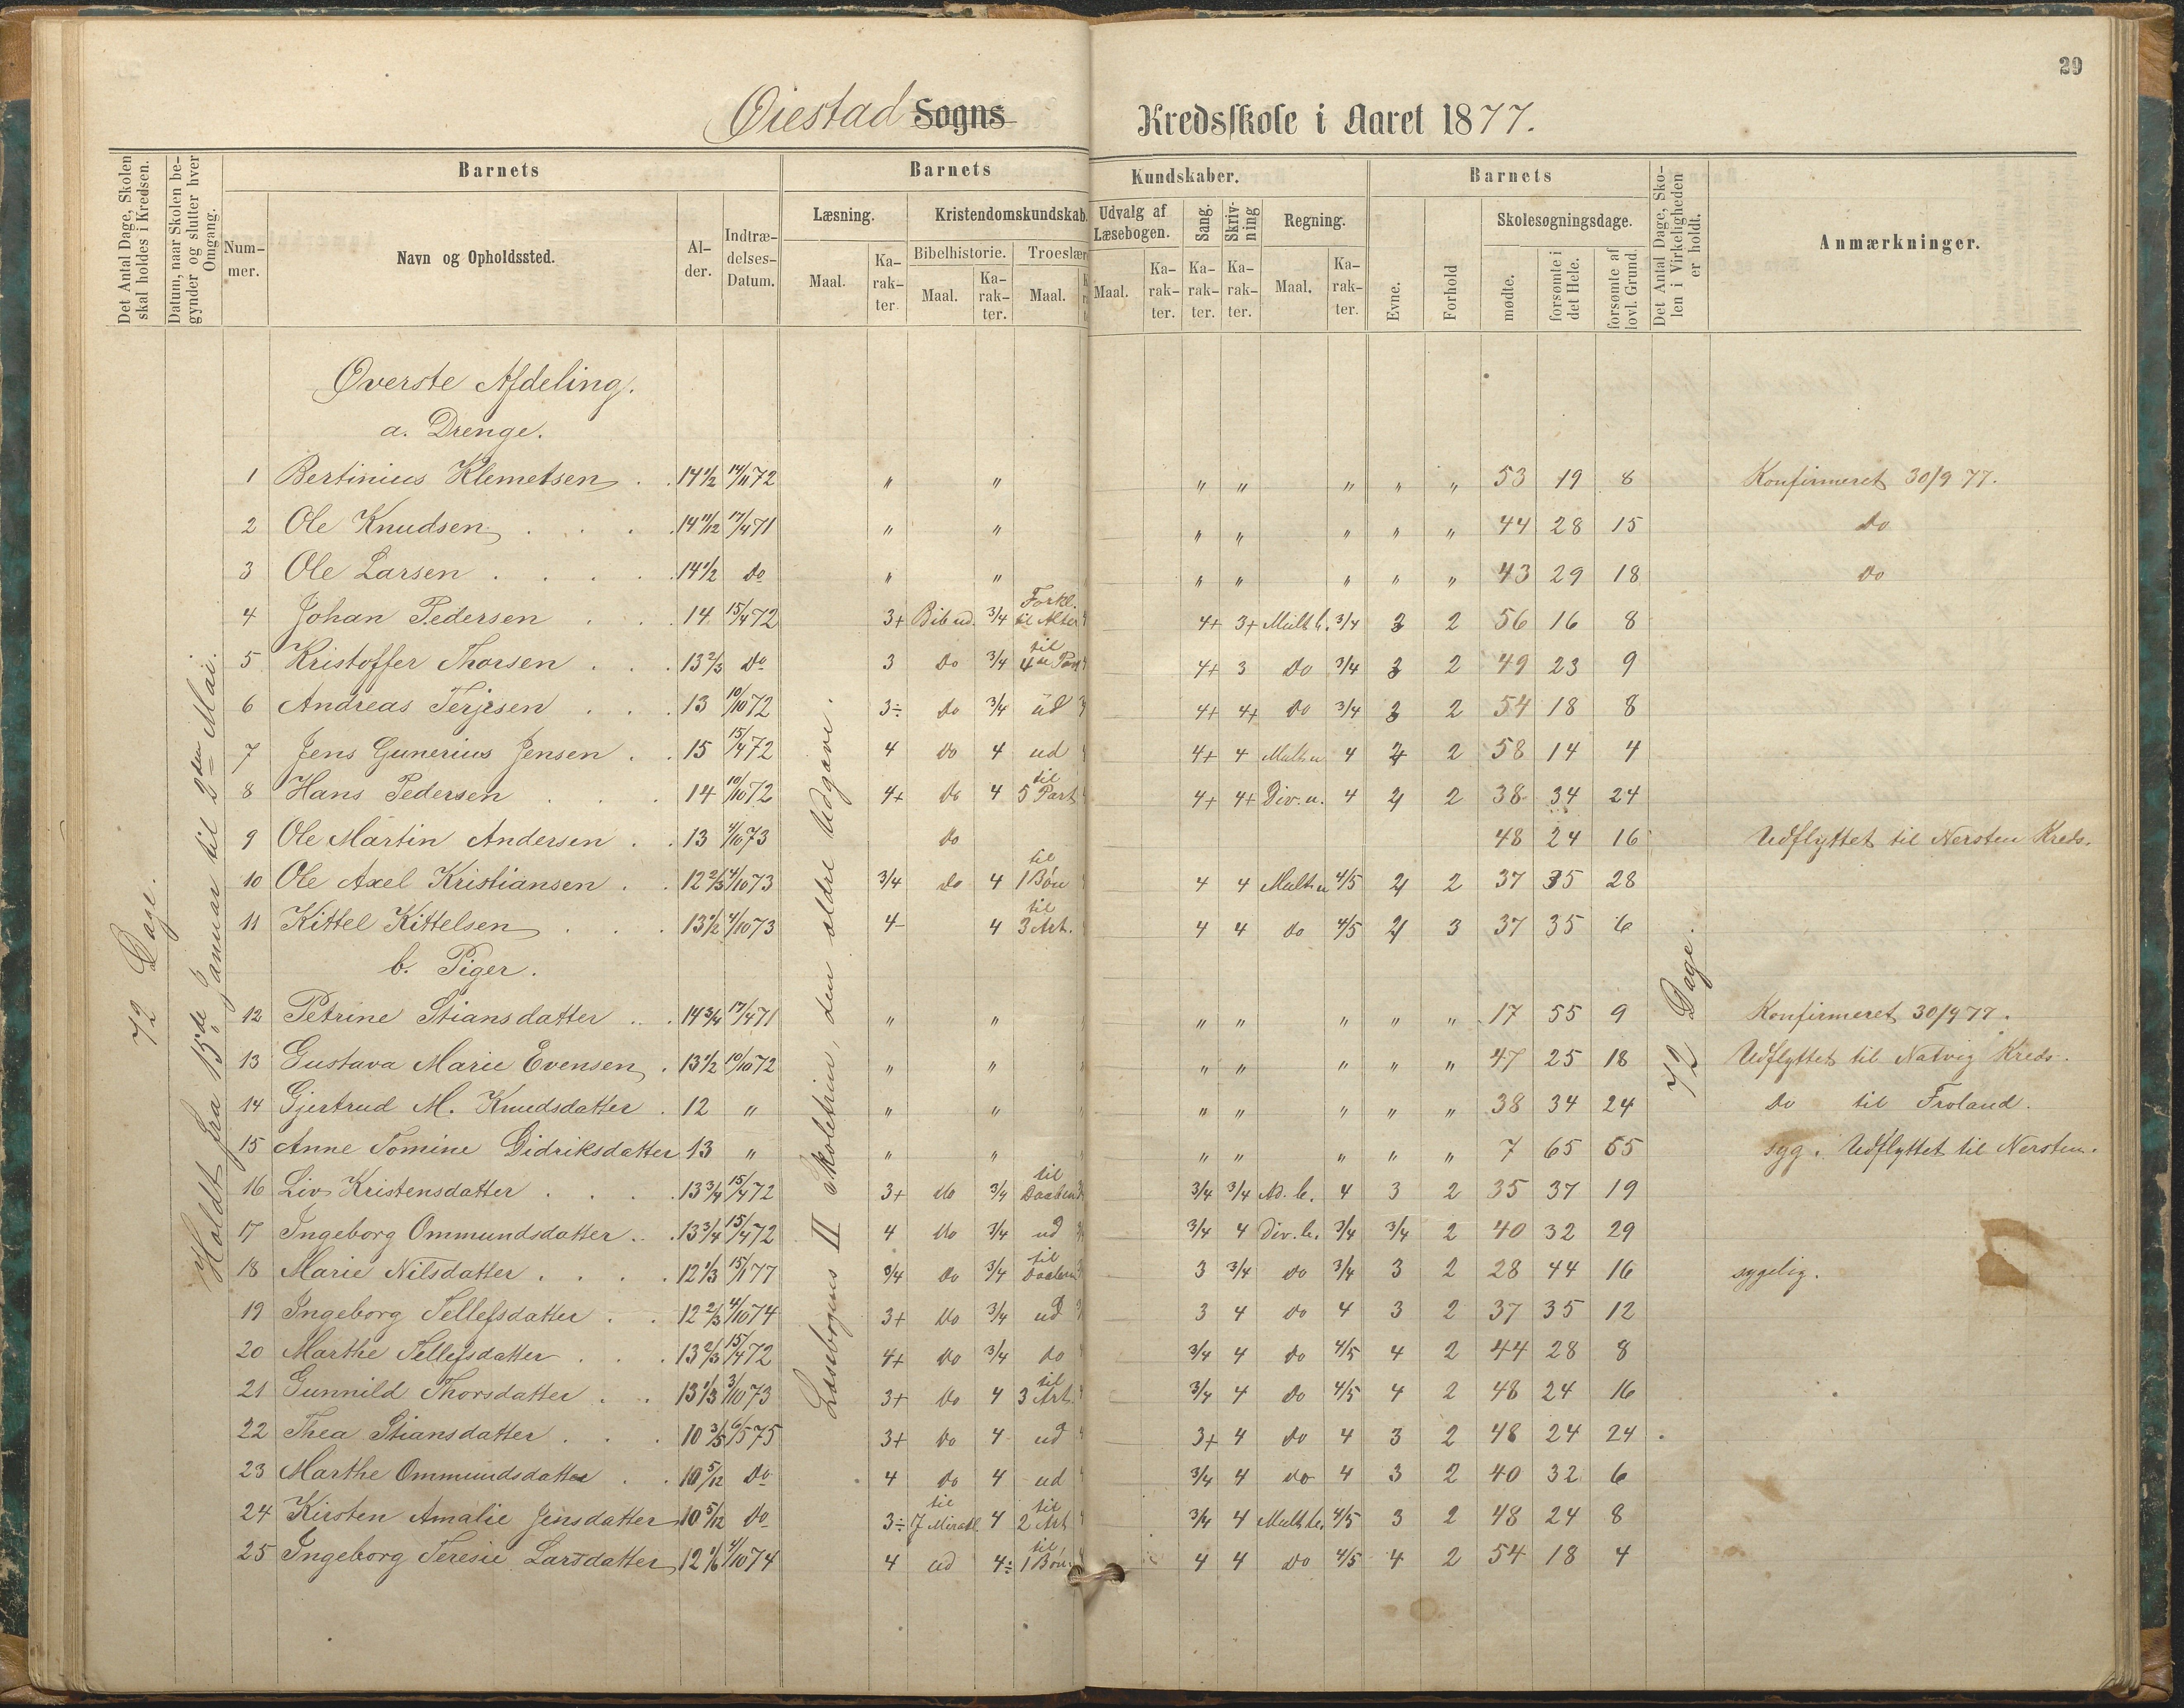 29
Øiestad Sogns Kredsskole i Aaret 1877.
Det Antal Dage, Skolen skal holdes i Kredsen.
Datum, naar Skolen begynder og slutter hver Omgang.
Barnets
Barnets Kundskaber.
Barnets
Det Antal Dage, Skolen i Virkeligheden er holdt.
Anmærkninger.
Nummer.
Navn og Opholdssted.
Alder.
Indtrædelses-Datum.
Læsning.
Kristendomskundskab.
Udvalg af Læsebogen.
Sang.
Skrivning
Regning.
Evne.
Forhold
Skolesøgningsdage.
Bibelhistorie.
Troeslær
Maal. Karakter. Maal. Karakter. Maal.
Maal. Karakter. Karakter. Karakter. Maal. Karakter.
mødte. forsømte i det Hele. forsømte af lovl. Grund.
72 Dage.
Holdt fra 15de Januar til 2den Mai.
Læsebogens II Skoletrin, den ældre Udgave.
72 Dage.
Øverste Afdeling.
a. Drenge.
1 Bertinius Klemetsen 14 1/2 14/11 72 " " " " " " " 53 19 8 Konfirmeret 30/9 77.
2 Ole Knudsen 14 11/12 17/4 71 " " " " " " " 44 28 15 Do
3 Ole Larsen 14 1/2 Do " " " " " " " 43 29 18 Do
4 Johan Pedersen 14 15/4 72 3+ Bib ud. 3/4 Forkl. til Alter 4+ 3+ Mult b. 3/4 3 2 56 16 8
5 Kristoffer Thorsen 13 2/3 Do 3 Do 3/4 til 4de Part 4+ 3 Do 3/4 3 2 49 23 9
6 Andreas Terjesen 13 10/10 72 3÷ Do 3/4 ud 4+ 4+ Do 3/4 3 2 54 18 8
7 Jens Gunerius Jensen 15 15/4 72 4 Do 4 ud 4+ 4 Mult u 4 4 2 58 14 4
8 Hans Pedersen 14 10/10 72 4+ Do 4 til 5 Part 4+ 4+ Div. u. 4 4 2 38 34 24
9 Ole Martin Andersen 13 4/10 73 Do 48 24 16 Udflyttet til Nersten Kreds.
10 Ole Axel Kristiansen 12 2/3 4/10 73 3/4 Do 4 til 1 Bøn 4 4 Mult u 4/5 4 2 37 35 28
11 Kittel Kittelsen 13 1/2 4/10 73 4- 4 til 3 Art. 4 4 do 4/5 4 3 37 35 6
b. Piger.
12 Petrine Stiansdatter 14 3/4 17/4 71 " " " " " " " 17 55 9 Konfirmeret 30/9 77.
13 Gustava Marie Evensen 13 1/2 10/10 72 " " " " " " " 47 25 18 Udflyttet til Natvig Kreds.
14 Gjertrud M. Knudsdatter 12 " " " " " " " " 38 34 24 Do til Froland.
15 Anne Tomine Didriksdatter 13 " " " " " " " " 7 65 65 syg. Udflyttet til Nersten.
16 Liv Kristensdatter 13 3/4 15/4 72 3+ Do 3/4 til Daaben 3/4 3/4 Ad. b. 4 3 2 35 37 19
17 Ingeborg Ommundsdatter 13 3/4 15/4 72 4 Do 3/4 ud 3/4 4 Div. b. 3/4 3/4 2 40 32 29
18 Marie Nilsdatter 12 1/3 15/1 77 3/4 Do 3/4 til Daaben 3 3/4 do 3/4 3 2 28 44 16 sygelig.
19 Ingeborg Tellefsdatter 12 2/3 4/10 74 3+ Do 3/4 ud 3 4 do 4 3 2 37 35 12
20 Marthe Tellefsdatter 13 2/3 15/4 72 4+ Do 3/4 do 3/4 4 do 4/5 4 2 44 28 8
21 Gunnild Thorsdatter 13 1/3 3/10 73 3+ Do 4 til 3 Art. 3/4 4 do 4/5 4 2 48 24 16
22 Thea Stiansdatter 10 3/5 6/5 75 3+ Do 4 ud 3+ 4 do 4 3 2 48 24 24
23 Marthe Ommundsdatter 10 5/12 Do 4 Do 4 ud 3/4 4 do 4 3 2 40 32 6
24 Kirsten Amalie Jensdatter 10 5/12 Do 3÷ til 7 Mirakl 4 til 2 Art 3/4 4 Mult b. 4/5 3 2 48 24 8
25 Ingeborg Teresie Larsdatter 12 1/6 4/10 74 4 ud 4÷ til 1 Bøn 4 4 Do 4/5 4 2 54 18 4